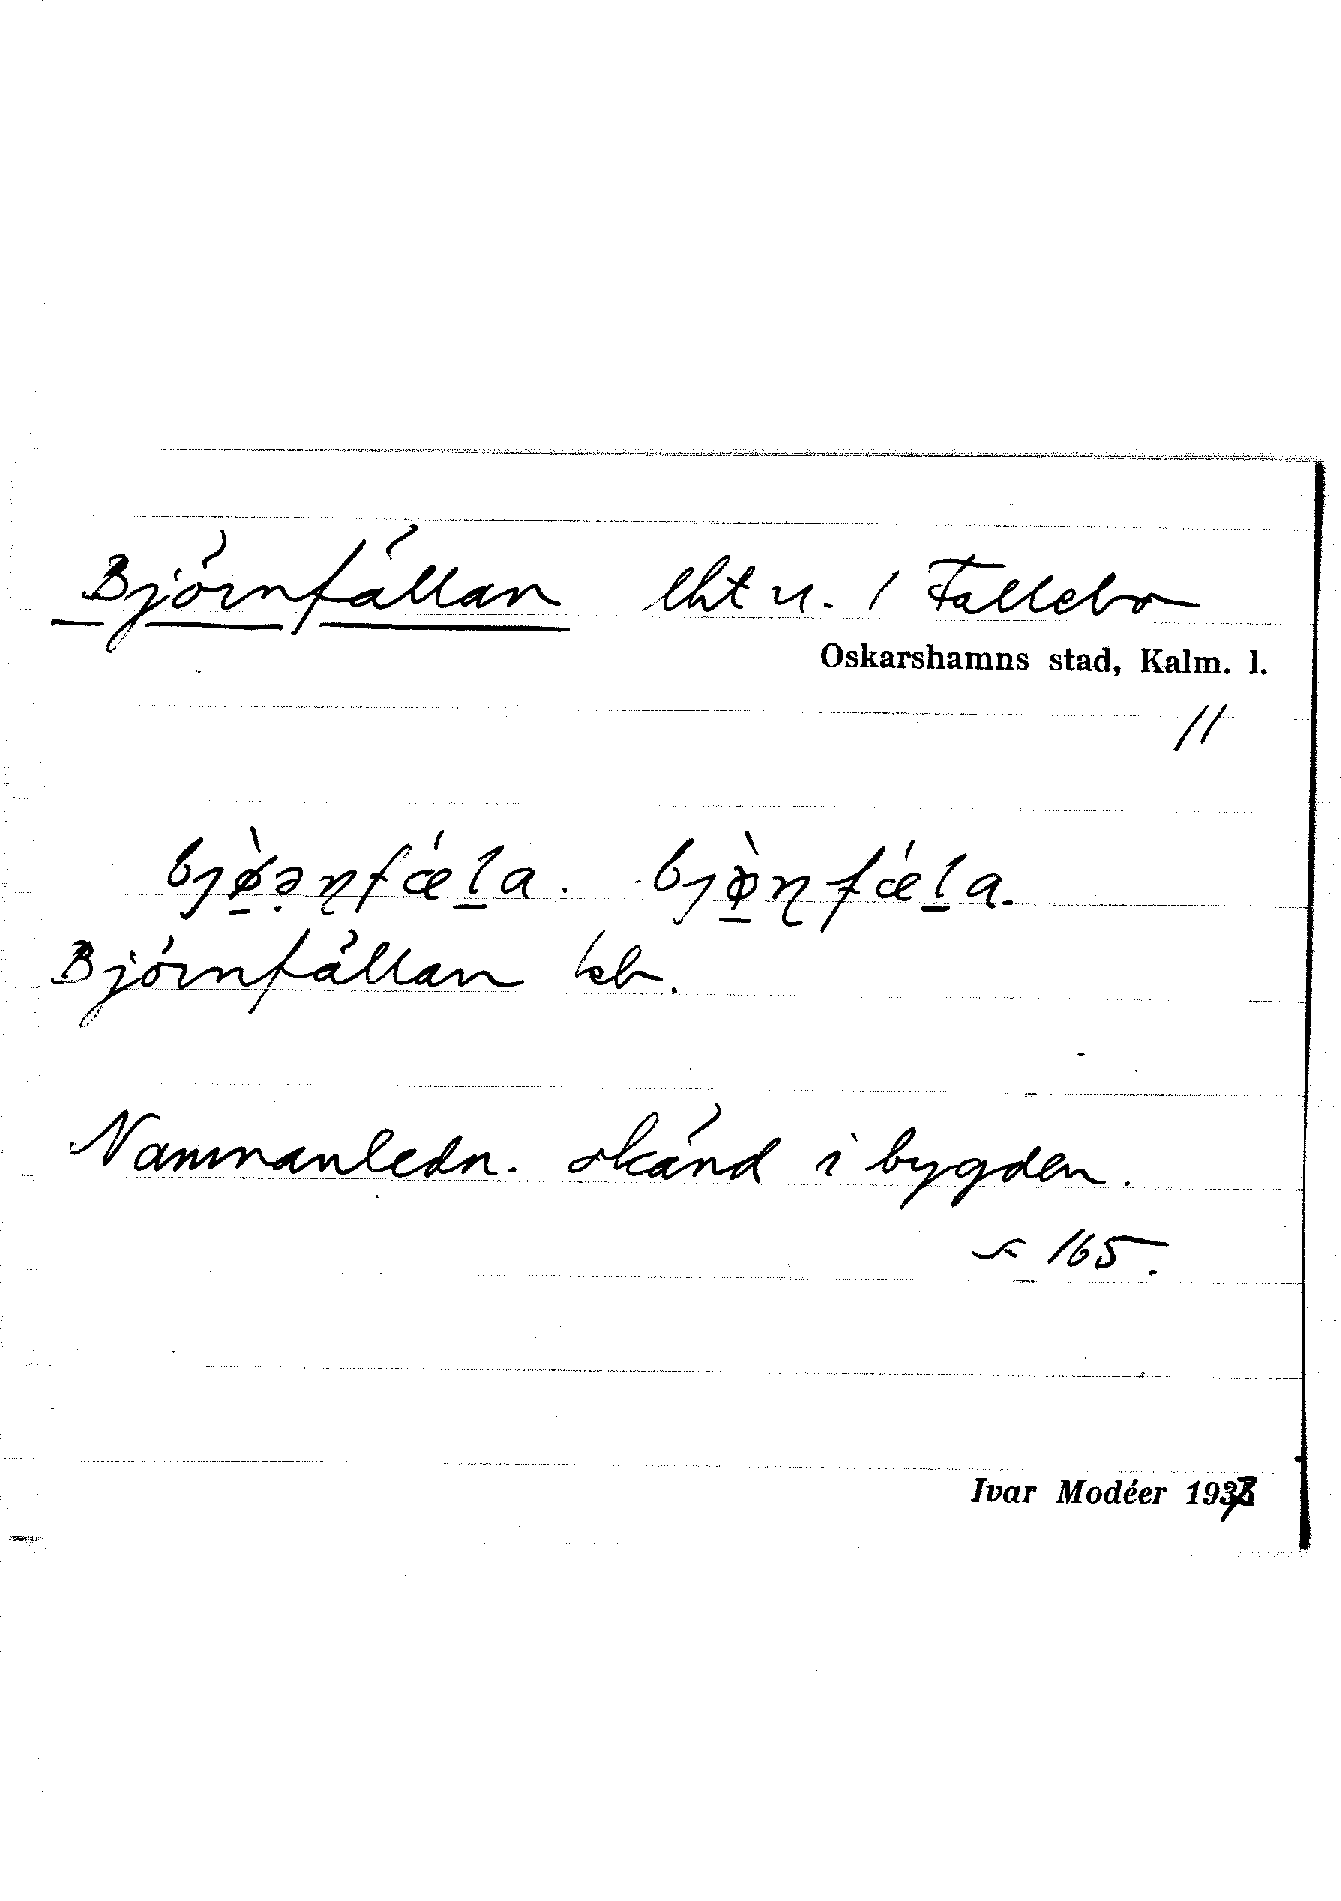 Björnfällan lht u. 1 Fallebo
Oskarshamns stad, Kalm. l.
11
bjø̀ənfǽla. bjø̀nfǽla.
Björnfällan kb.
Namnanledn. okänd i bygden.
165.
Ivar Modéer 1937